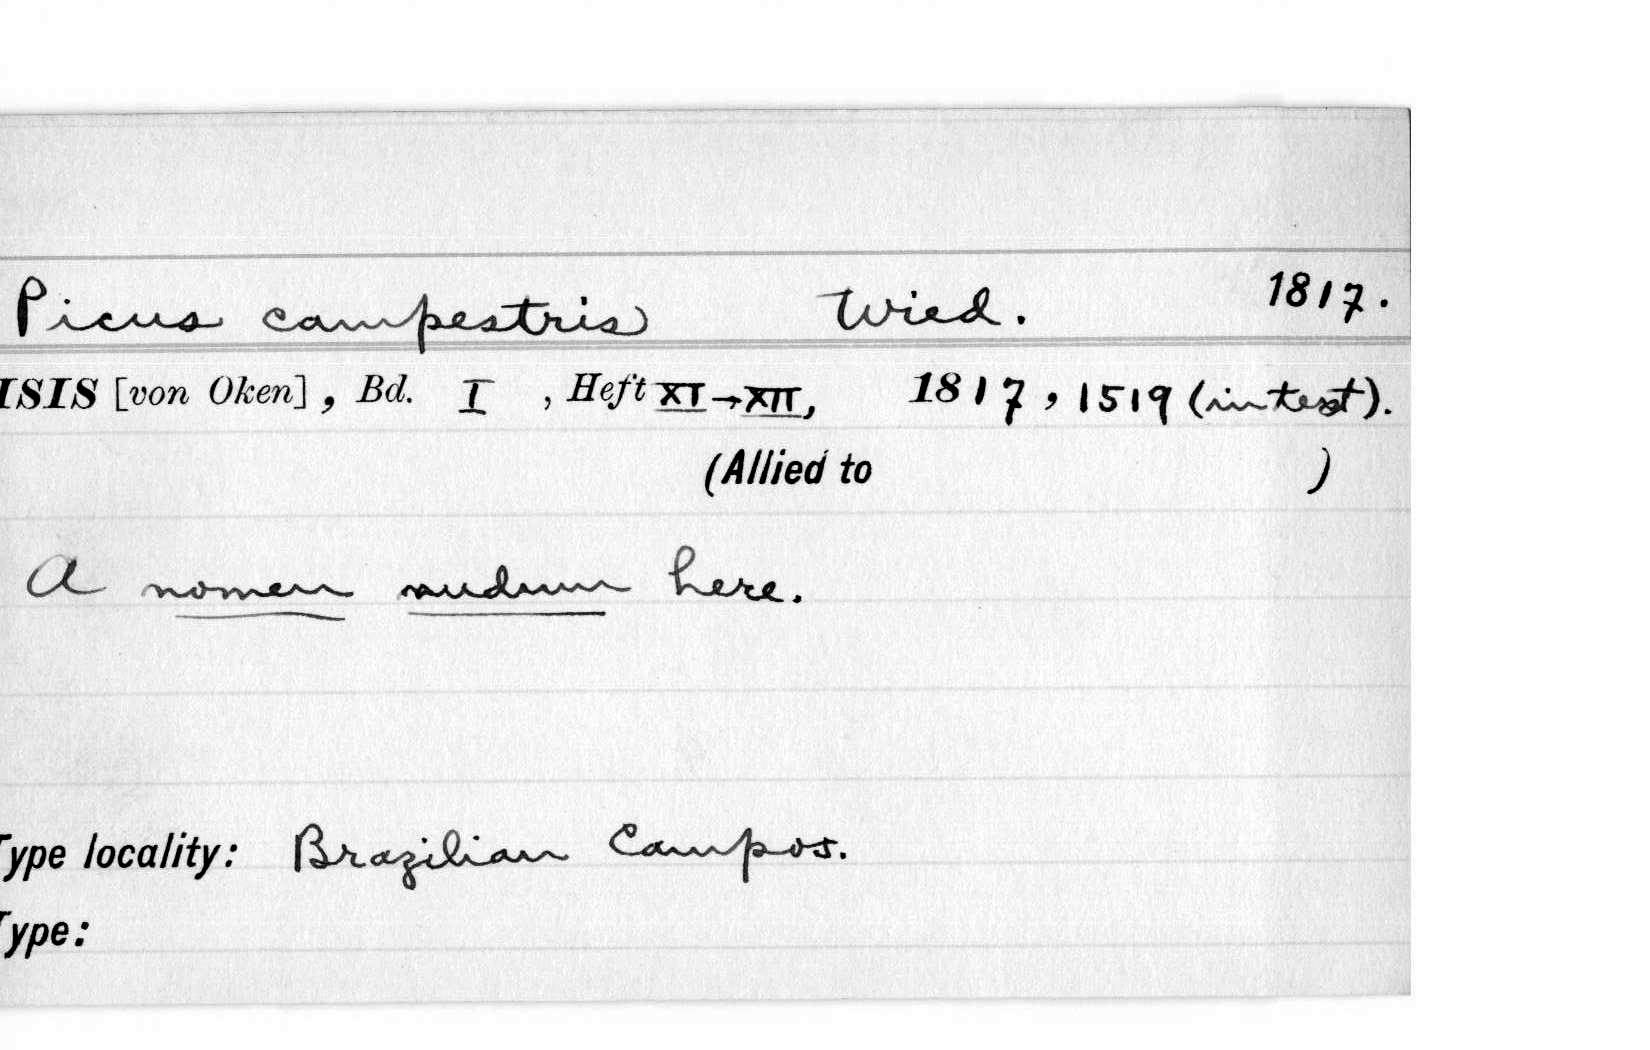 Picus campestris Wied. 1817.
ISIS [von Oken], Bd. I, Heft XI→XII, 1817, 1519 (in text).
(Allied to )
A nomen nudum here.
Type locality: Brazilian Campos.
Type: